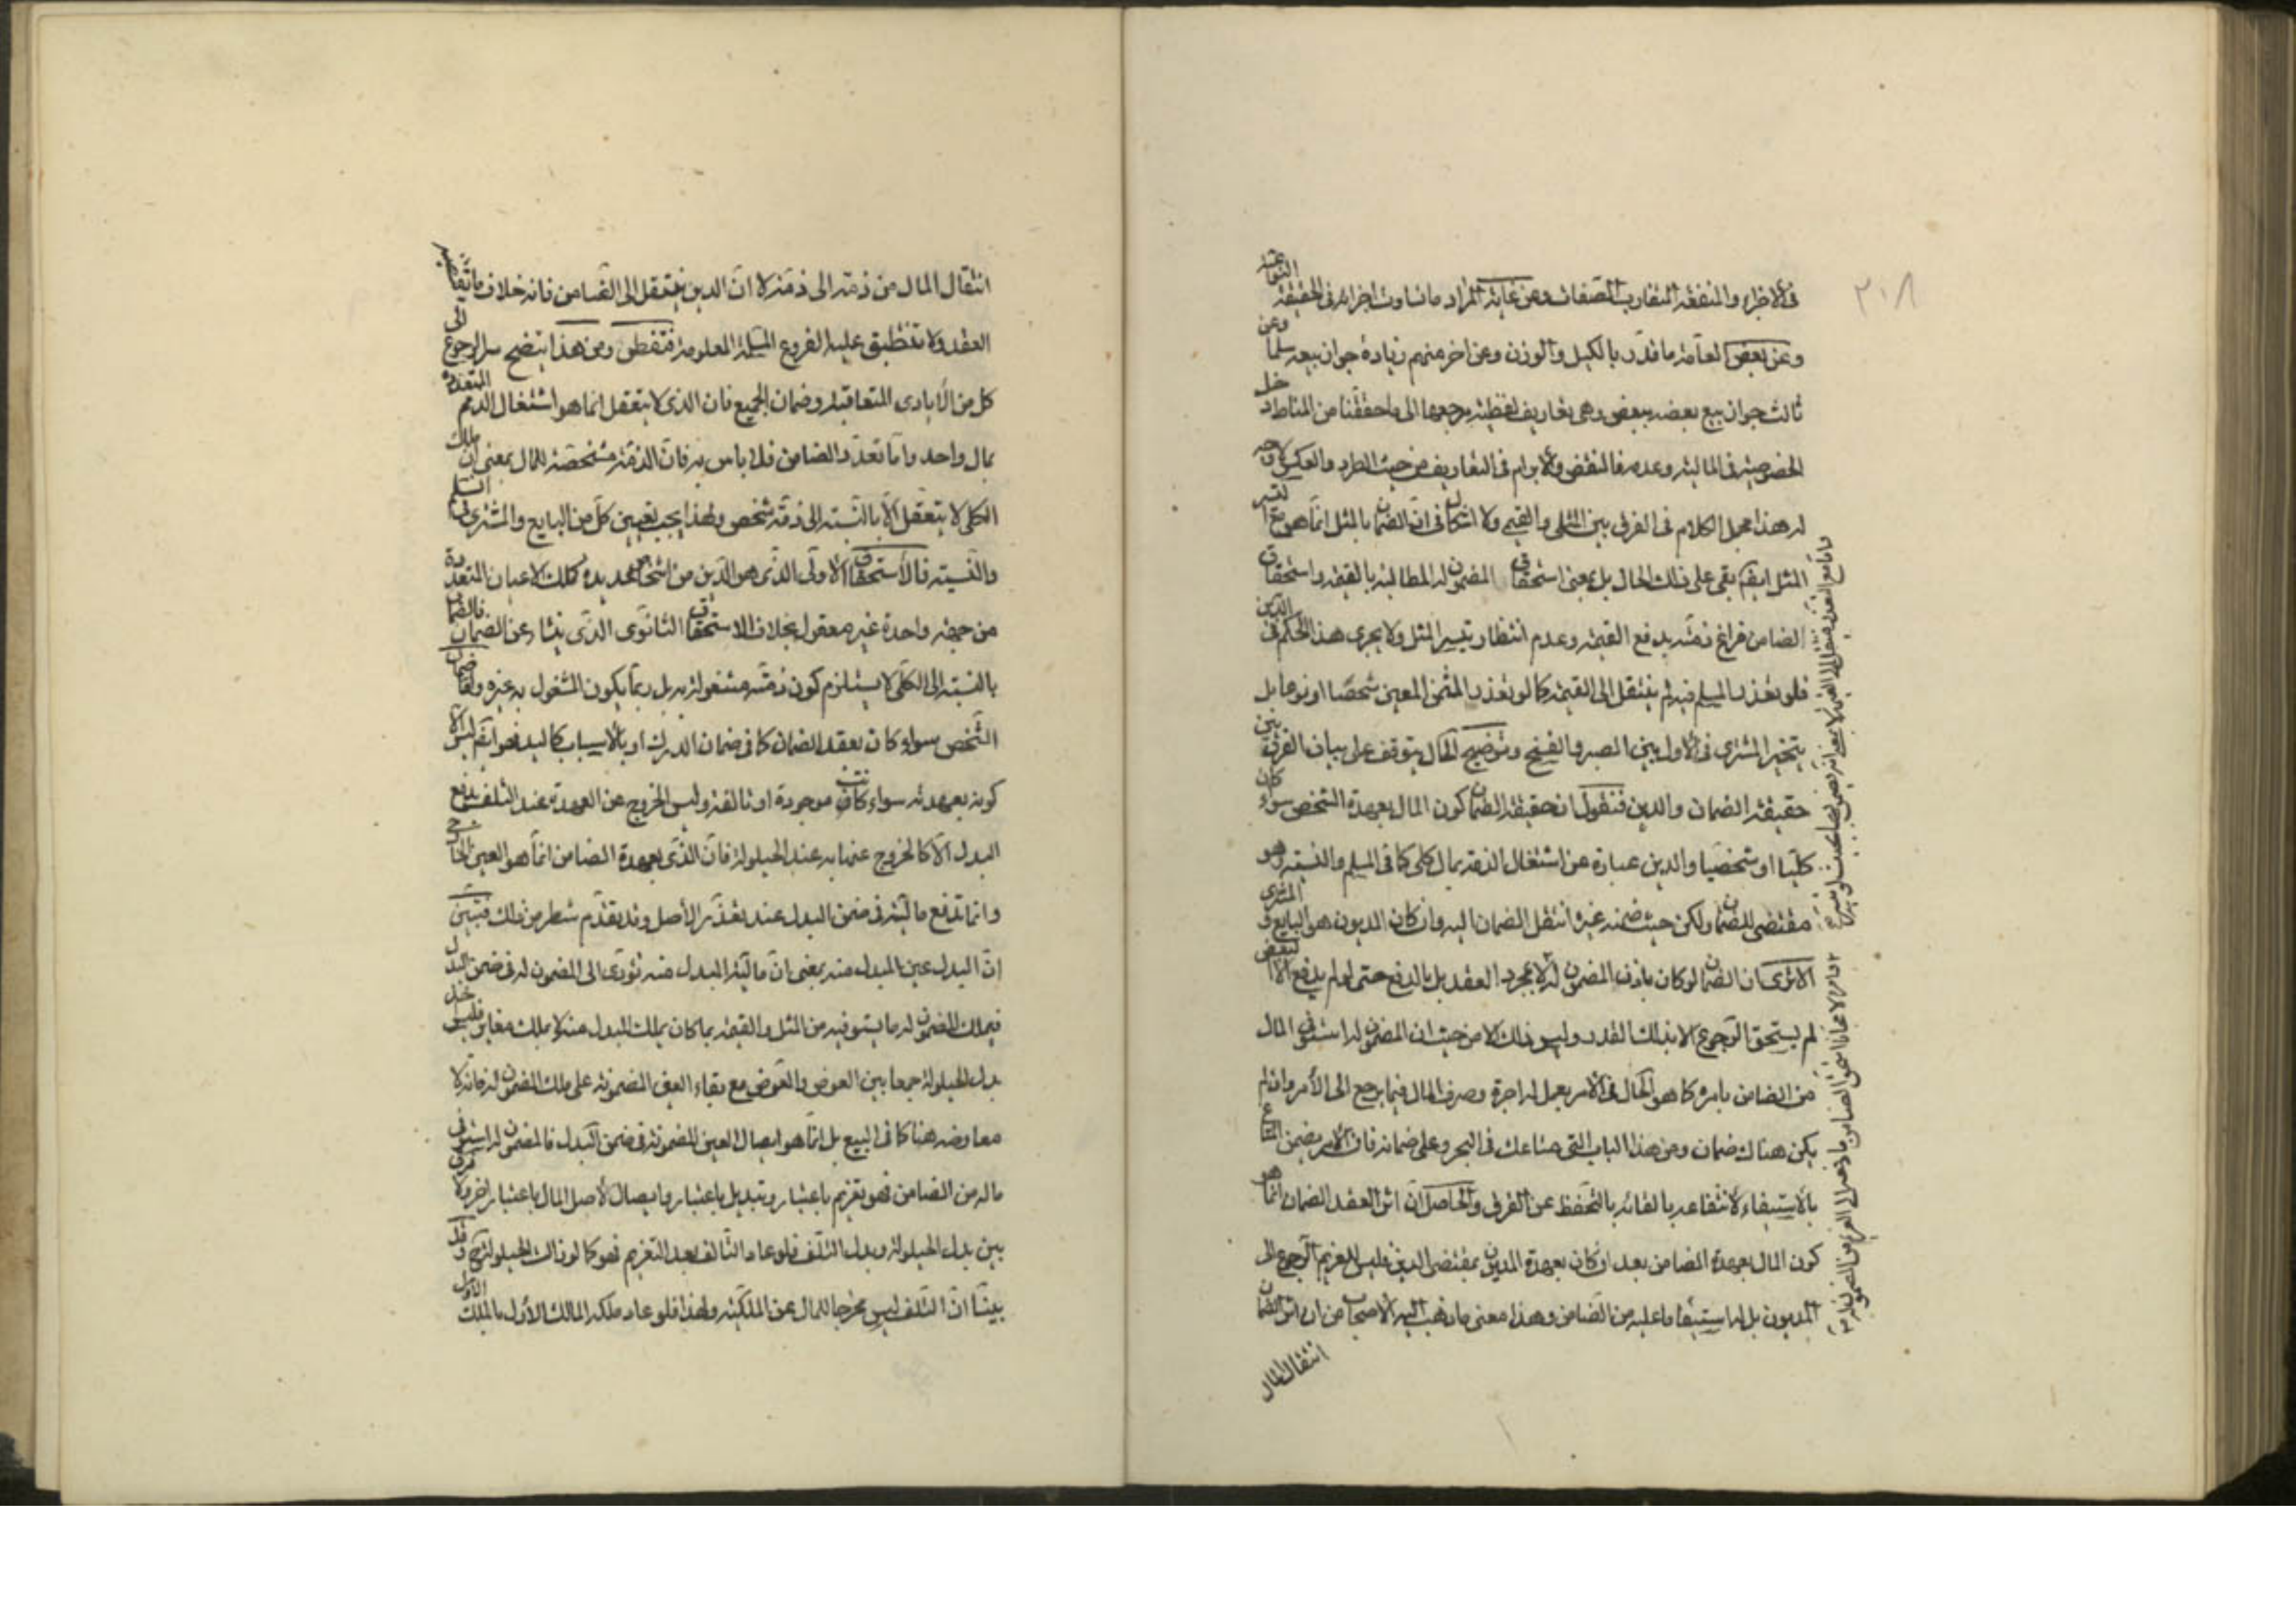 ٢٠٨
فى الاجزاء والمنفعة المتقارب الصفات وعن غاية المراد ما تساوت اجزائه فى الحقيقة النوعية
وعن بعض العامة ما قدر بالكيل والوزن وعن اخر منهم زيادة جواز بيعه سلما وعن
ثالث جواز بيع بعضه ببعض وهى تعاريف لفظية مرجعها الى ما حققنا من المناط دخل
الخصوصية فى المالية وعدمه فالنقض والابرام فى التعاريف من حيث الطرد والعكس لا وجه
له هذا مجمل الكلام فى الفرق بين المثلى والقيمى ولا اشكال فى ان الضمان بالمثل انما هو مع تيسر
المثل ايضا بقى على ذلك الحال بل بمعنى استحقاق المضمون له المطالبة بالقيمة واستحقاق
الضامن فراغ ذمته بدفع القيمة وعدم انتظار تيسر المثل ولا يجرى هذا الحكم فى الدين
فلو تعذر المسلم فيه لم ينتقل الى القيمة كما لو تعذر المثمن المعين شخصا او نوعا بل
يتخير المشترى فى الاول بين الصبر والفسخ وتوضيح الحال يتوقف على بيان الفرق بين
حقيقة الضمان والدين فنقول ان حقيقة الضمان كون المال بعهدة الشخص سواء كان
كليا او شخصيا والدين عبارة عن اشتغال الذمة بمال كلى كما فى السلم والنسية وهو
مقتضى للضمان ولكن حيث ضمنه غيره انتقل الضمان اليه وان كان المديون هو البايع والمشترى
الا ترى ان الضمان لو كان باذن المضمون له لا بمجرد العقد بل بالدفع حتى لو لم يدفع الا البعض
لم يستحق الرجوع الا بذلك القدر وليس ذلك الا من حيث ان المضمون له استوفى المال
من الضامن بامره كما هو الحال فى الامر بعمل له اجرة وصرف المال فيما يرجع الى الامر وان لم
يكن هناك ضمان ومن هذا الباب الق متاعك فى البحر وعلى ضمانه فان الامر يضمن المتاع
بالاستيفاء لانتفاعه بالقائه بالتحفظ عن الغرق والحاصل ان اثر العقد الضمان انما هو
كون المال بعهدة الضامن بعد ان كان بعهدة المديون بمقتضى الدين فليس للغريم الرجوع الى
المديون بل له استيفاء ما عليه من الضامن وهذا معنى ما ذهب اليه الاصحاب من ان اثر الضمان
انتقال المال
انتقال المال من ذمته الى ذمته لا ان الدين ينتقل الى الضامن فانه خلاف ما يتقاضاه
العقد ولا تنطبق عليه الفروع المسلمة المعلومة فتفطن ومن هذا يتضح سر الرجوع الى
كل من الايادى المتعاقبة وضمان الجميع فان الذى لا يتعقل انما هو اشتغال الذمم المتعددة
بمال واحد واما تعدد الضامن فلا باس به فان الذمة مشخصة للمال بمعنى ان ملك
الكلى لا يتعقل الا بالنسبة الى ذمة شخص ولهذا يجب تعيين كل من البايع والمشترى فى السلم
والنسية فالاستحقاق الاولى الذى هو الدين من اشخاص عديدة كملك الاعيان المتعددة
من جهة واحدة غير معقول بخلاف الاستحقاق الثانوى الذى ينشا عن الضمان فالضمان
بالنسبة الى الكلى لا يستلزم كون ذمته مشغولة به بل ربما يكون المشغول به غيره واما ضمان
الشخص سواء كان بعقد الضمان كما فى ضمان الدرك او بالاسباب كاليد فهو ايضا ليس الا
كونه بعهدته سواء كانت موجودة او تالفة وليس الخروج عن العهدة عند التلف بدفع
البدل الا كالخروج عنها به عند الحيلولة فان الذى بعهدة الضامن انما هو العين الخارجى
وانما تدفع ماليته فى ضمن البدل عند تعذر الاصل وقد تقدم شطر من ذلك فتبين
ان البدل عين المبدل منه بمعنى ان مالية المبدل منه تؤدى الى المضمون له فى ضمن البدل
فيملك المضمون له ما يستوفيه من المثل والقيمة بما كان يملك المبدل منه لا بملك مغاير فليس اخذ
بدل الحيلولة جمعا بين العوض والمعوض مع بقاء العين المضمونة على ملك المضمون له فانه لا
معاوضة هنا كما فى البيع بل انما هو ايصال العين المضمونة فى ضمن البدل فالمضمون له استوفى
ماله من الضامن فهو تغريم باعتبار وتبديل باعتبار وايصال لاصل المال باعتبار اخر ولا فرق
بين بدل الحيلولة وبدل التلف فلو عاد التالف بعد التغريم فهو كما لو زال الحيلولة وقد
بينا ان التلف ليس مخرجا للمال عن الملكية ولهذا فلو عاد ملكه المالك الاول بالملك الاول